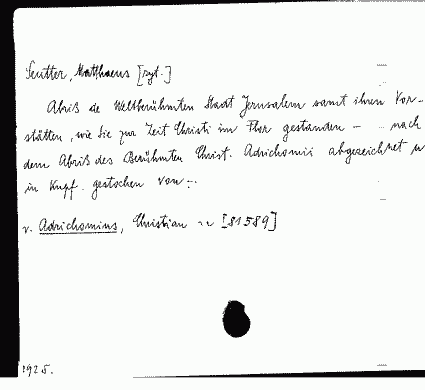 Seutter, Matthaeus [ryt.]
Abriß de Weltberühmten Stadt Jerusalem samt ihren Vor-
stätten, wie sie zur Zeit Christi im Flor gestanden – nach
dem Abriß des Berühmten Christ. Adrichomii abgezeichnet u
in Kupf. gestochen von –.
v. Adrichomius, Christian [81589]
1925.